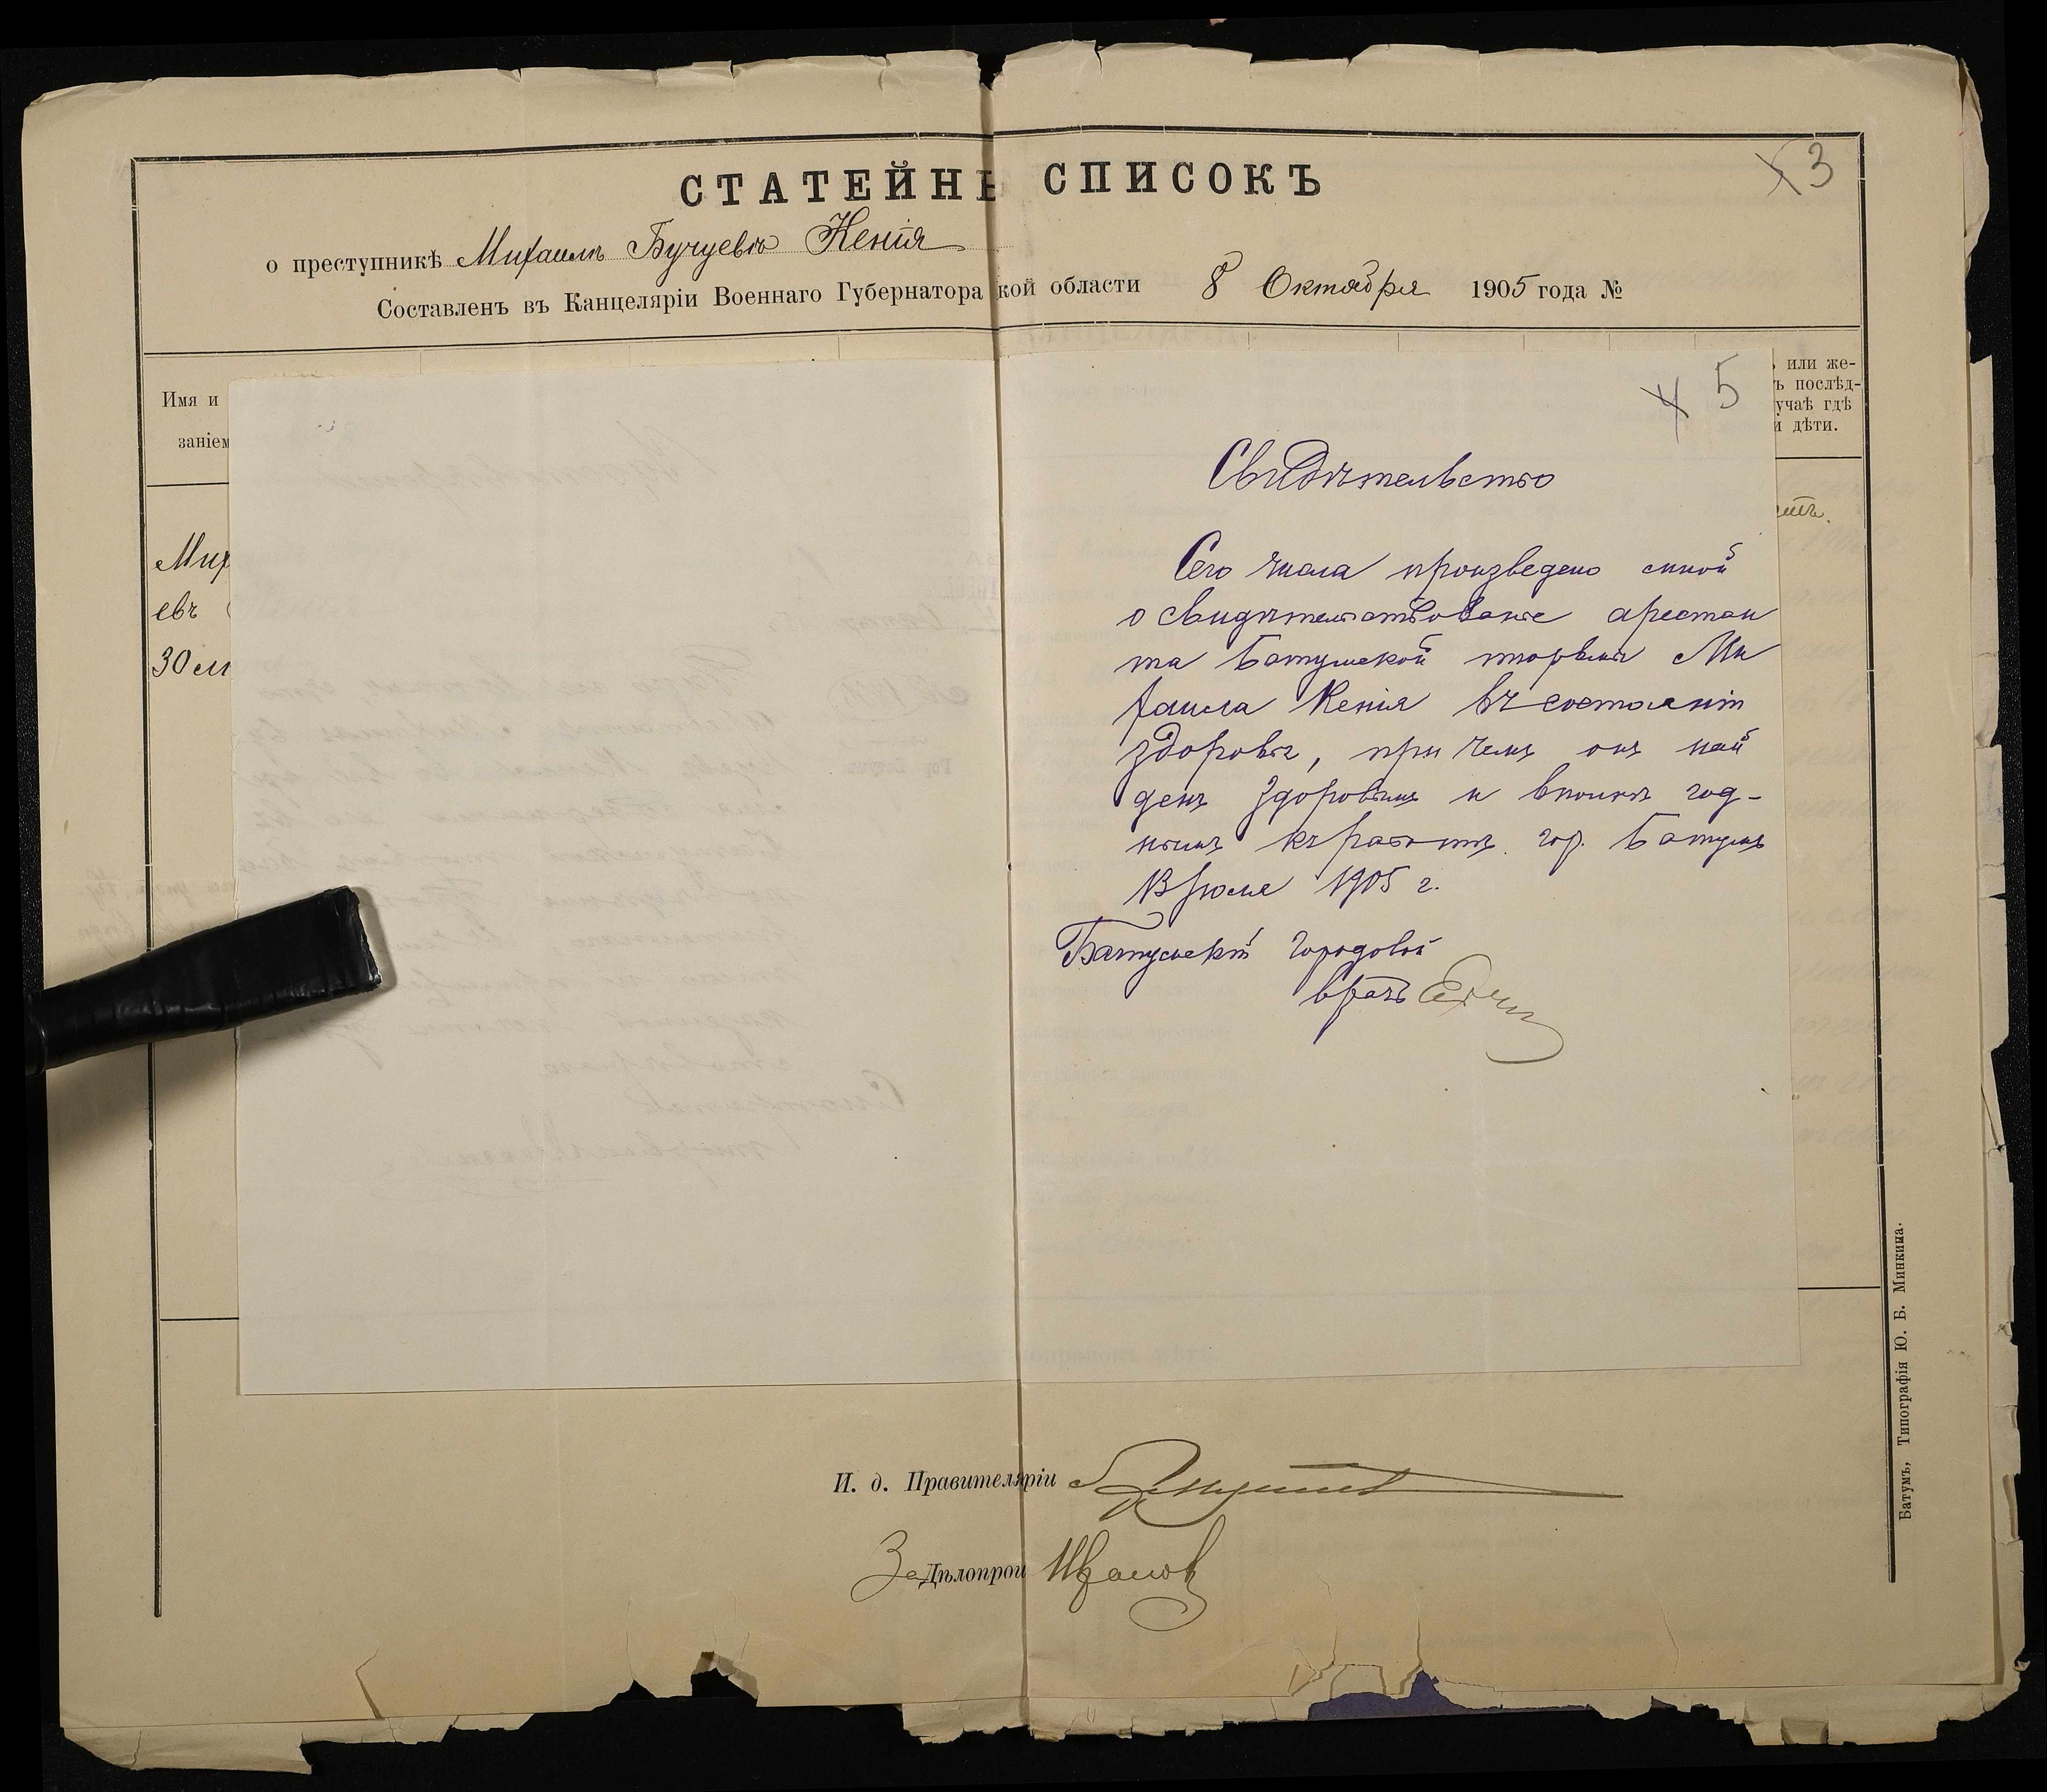 3
СТАТЕЙНЫ СПИСОКЪ
о преступникѣ Михаилъ Бучуевъ Кенія
Составленъ въ Канцеляріи Военнаго Губернатора кой области 8 Октября 1905 года №
Имя и
заніем
или же-
ъ послѣд-
учаѣ гдѣ
и дѣти.
Мих
евъ
30 лѣ
4 5
Свидѣтельство
Сего числа произведено мной
освидѣтельствованіе арестан
та Батумской тюрьмы Ми
хаила Кенія въ состояніи
здоровья, при чемъ онъ най
денъ здоровымъ и вполнѣ год-
нымъ къ работѣ. гор. Батумъ
13 Іюля 1905 г.
Батумскій Городовой
врачъ
И. д. Правителяріи
За Дѣлопрои Иванов
Батумъ, Типографія Ю. Б. Минкина.